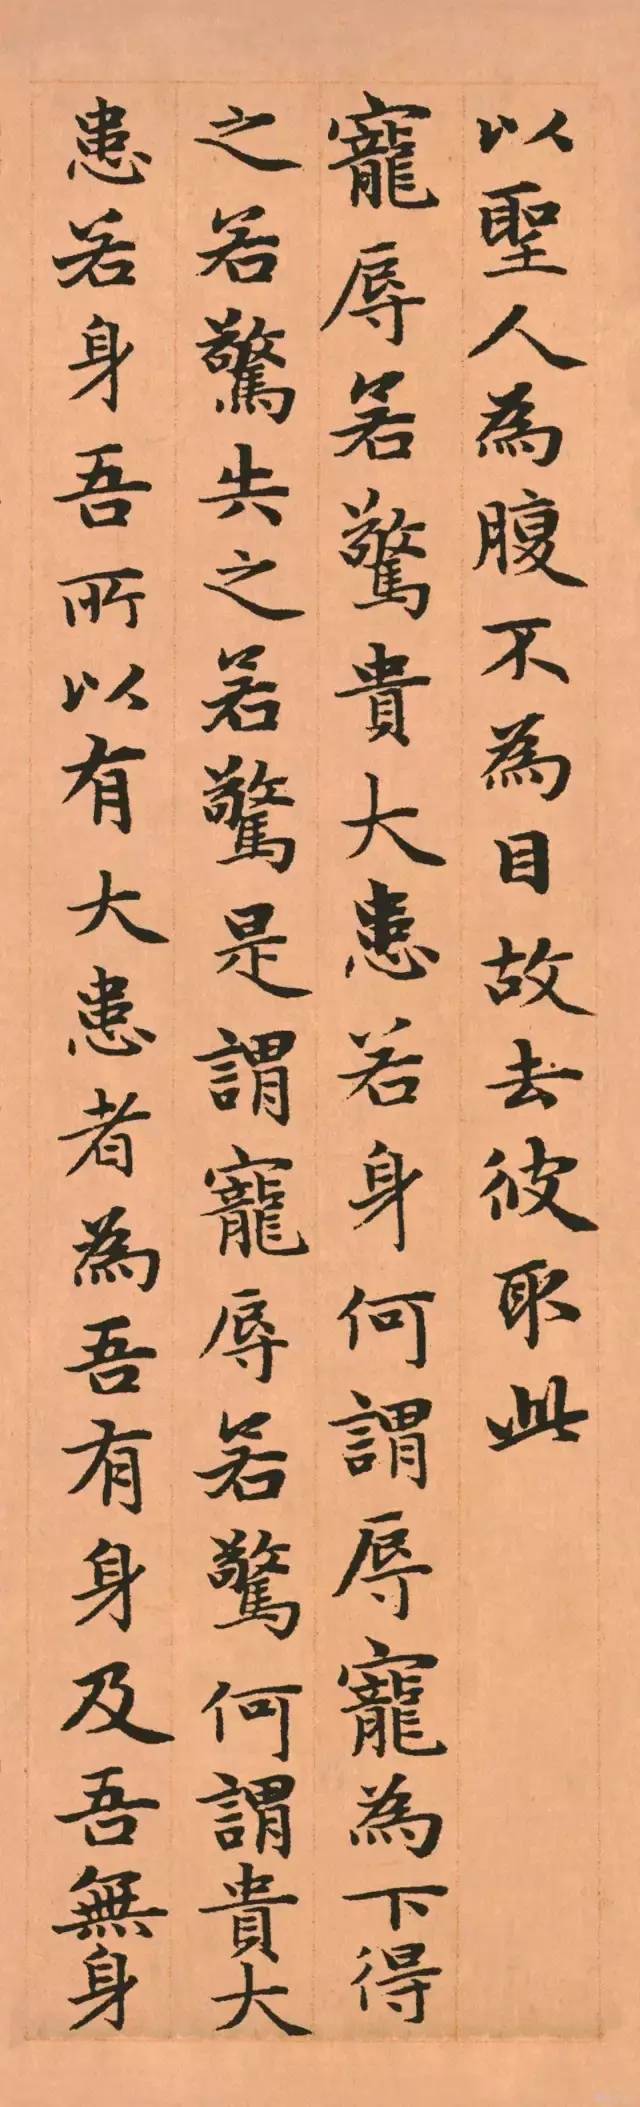 以聖人為腹不為目故去彼取此
寵辱若驚貴大患若身何謂辱寵為下得
之若驚失之若驚是謂寵辱若驚何謂貴大
患若身吾所以有大患者為吾有身及吾無身